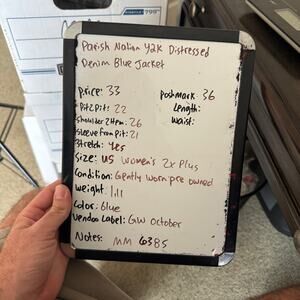 Parish Nation Y2K Distressed
Denim Blue Jacket
price: 33
poshmark: 36
Pit2Pit: 22
Length:
Shoulder2Hem: 26
Waist:
Sleeve from Pit: 21
Stretch: Yes
Size: US Women's 2x Plus
Condition: Gently worn pre owned
weight: 1.11
Color: Blue
Vendoo Label: GW October
Notes: MM 6385